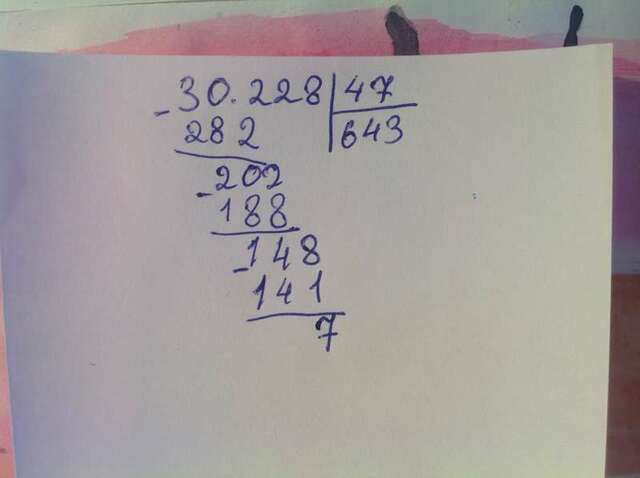 - 30.228 | 47
282 | 643
- 202
188
- 148
141
7